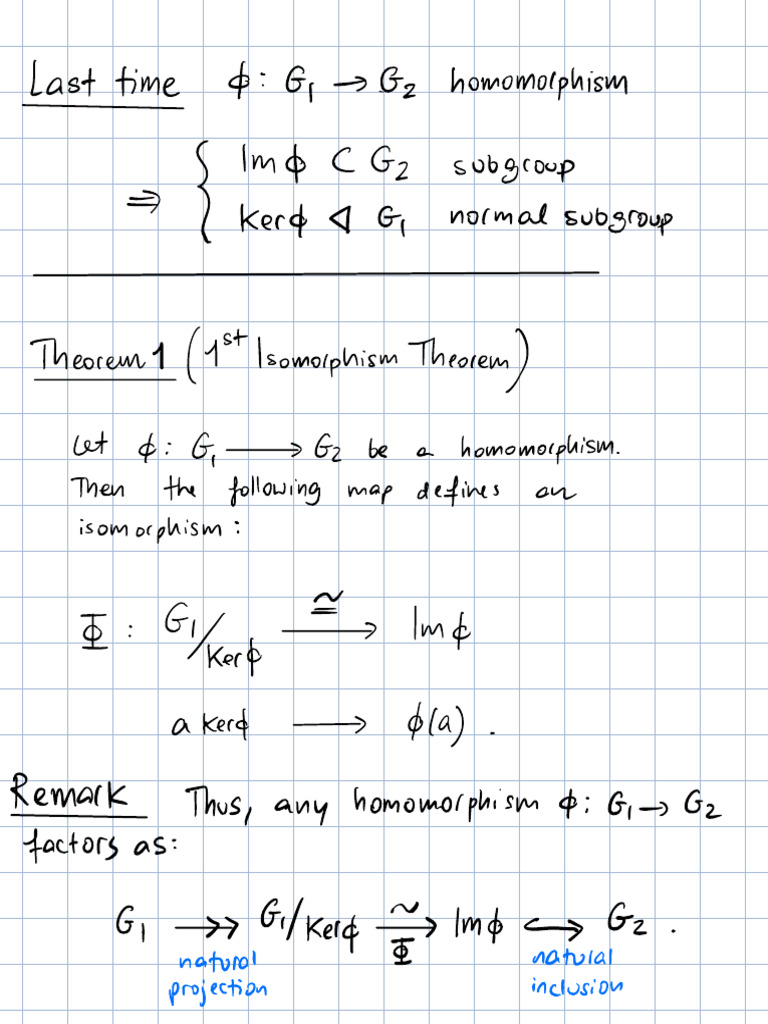 Last time ϕ: G₁ → G₂ homomorphism
⇒ { Im ϕ ⊂ G₂ subgroup
ker ϕ ⊲ G₁ normal subgroup
Theorem 1 (1ˢᵗ Isomorphism Theorem)
Let ϕ: G₁ ⟶ G₂ be a homomorphism.
Then the following map defines an
isomorphism:
Φ : G₁/Ker ϕ ≅⟶ Im ϕ
a ker ϕ ⟶ ϕ(a) .
Remark Thus, any homomorphism ϕ: G₁ → G₂
factors as:
G₁ ↠ G₁/Ker ϕ ~⟶ Im ϕ ↪ G₂ .
Φ
natural projection
natural inclusion